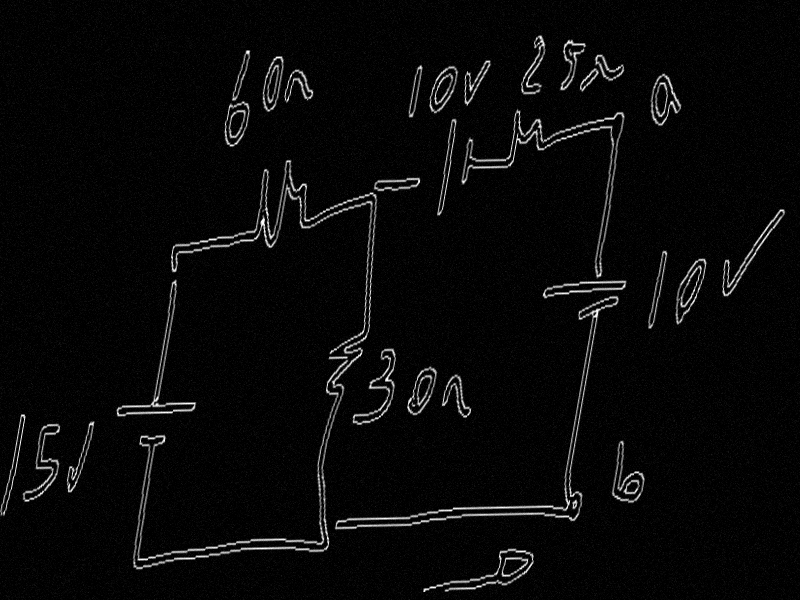 60Ω
10V
25Ω
a
10V
30Ω
15V
b